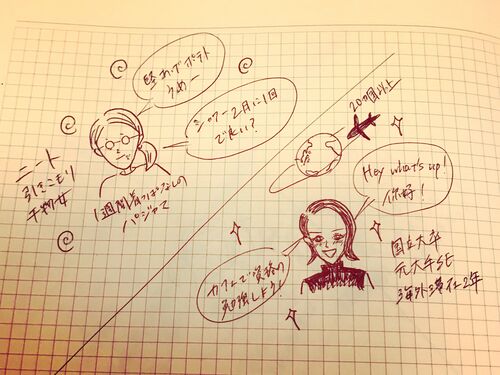 堅あげポテト
うめー
シャワー2月に1回
で良い?
ニート
引きこもり
干物女
1週間着っぱなしの
パジャマ
20ヵ国以上
Hey what's up!
你好!
カフェで資格の
勉強しよう!
国立大卒
元大手SE
海外滞在2年